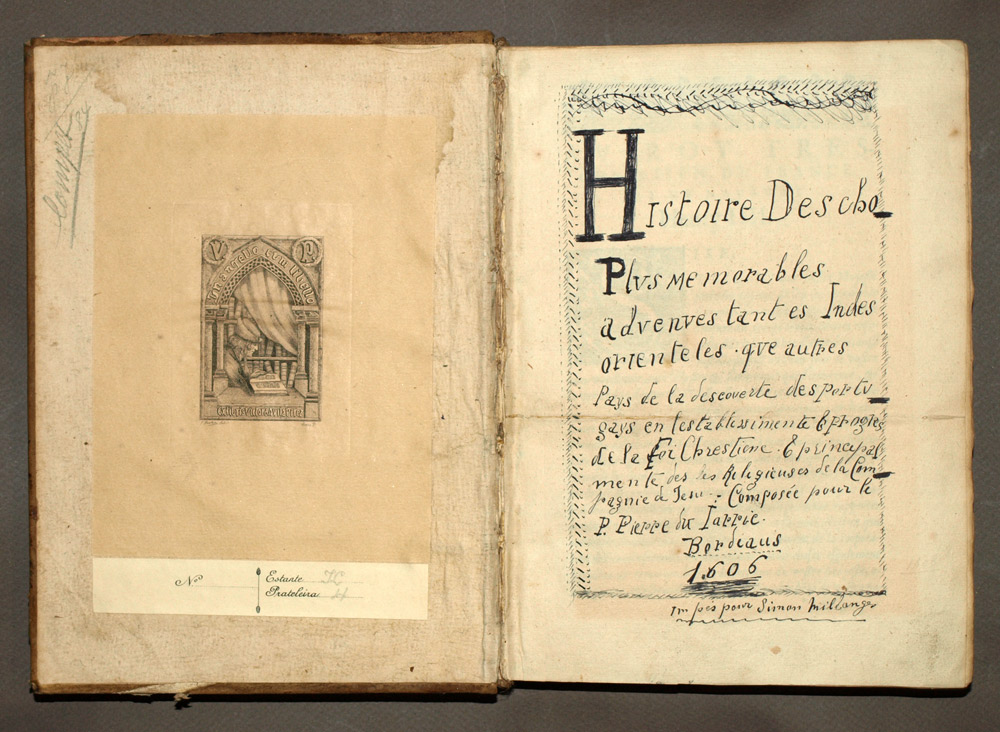 Compta
V R
exlibris
Nº
Estante
Prateleira
Histoire Des cho_
Plvs Memorables
advenves tant es Indes
orienteles . qve autres
Pays de la descouverte des portv_
gays en lestablissimente & progres
de la foi Chrestiene . & principal_
mente des les Religieuses de la Com_
pagnie de Iesu : Composée pour le
P. Pierre du Iarric .
Bordeaus
1.606
Impes pour Simon Millanges